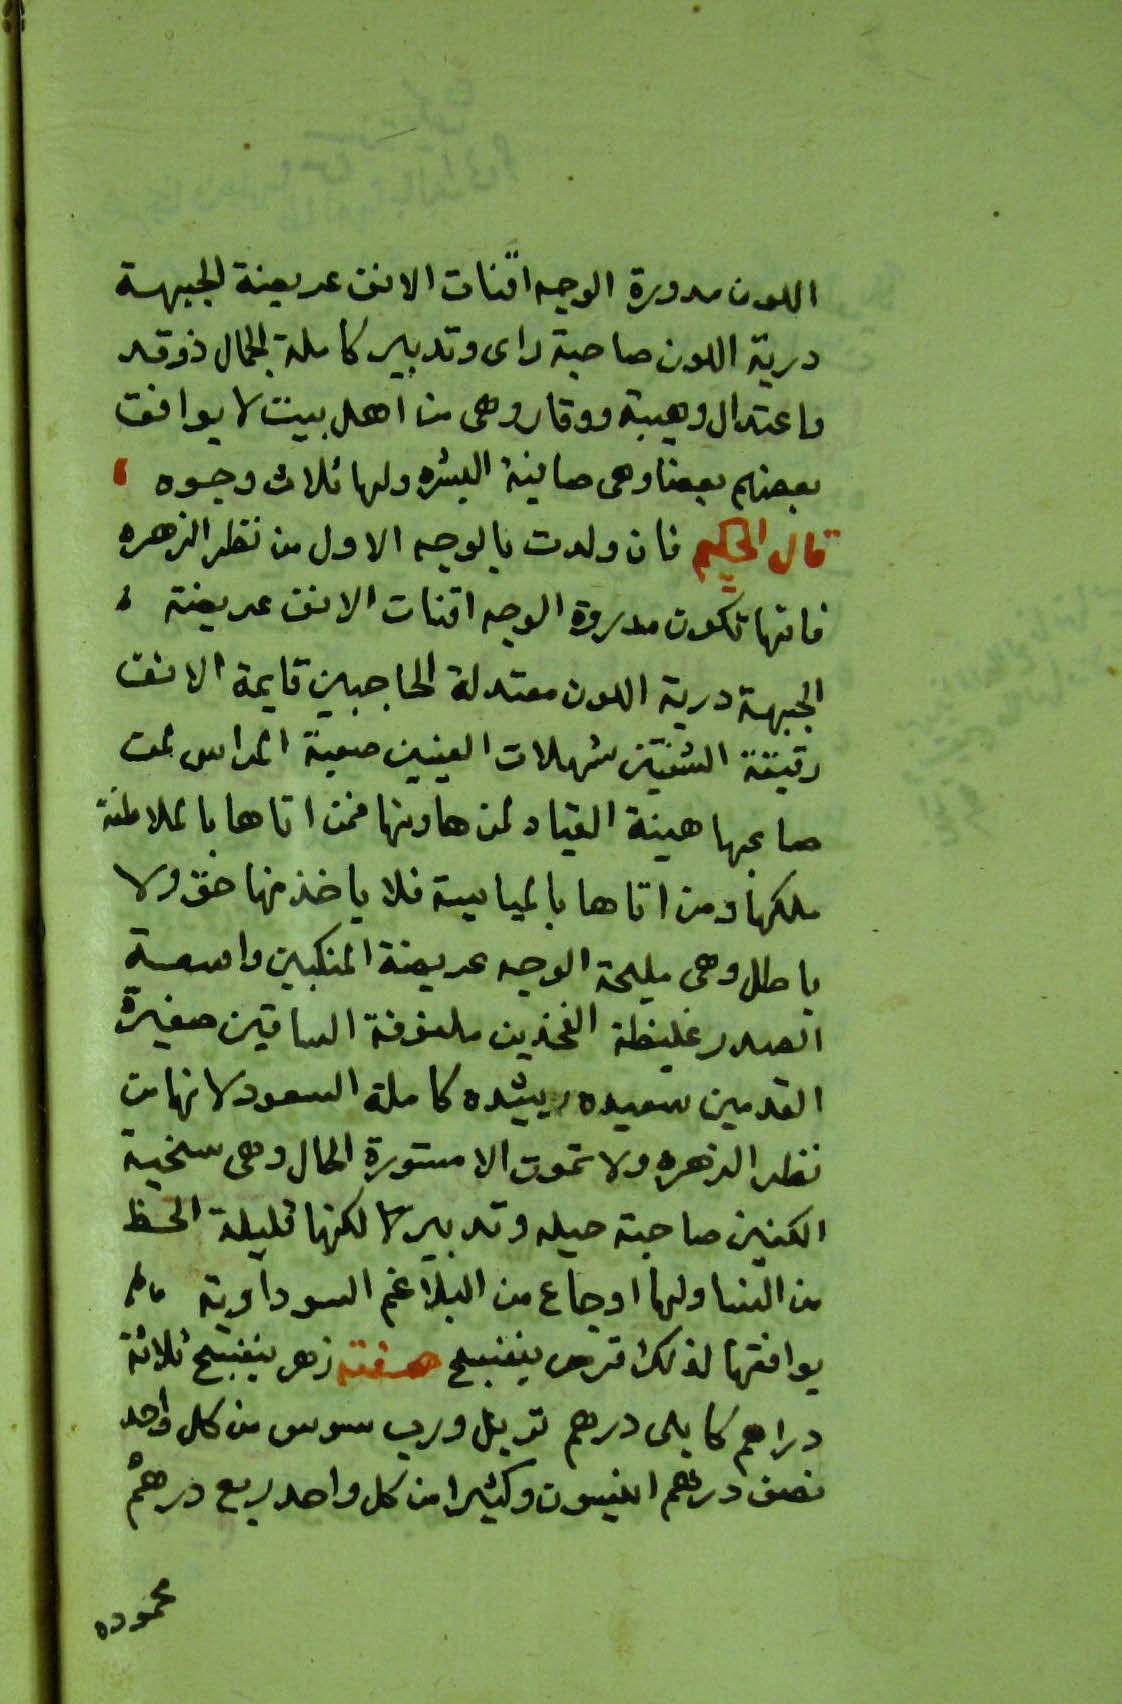 اللون مدورة الوجه اقنات الانف عريضة الجبهة
درية اللون صاحبة راى وتدبير كاملة الجمال ذو قد
واعتدال وهيبة ووقار وهى من اهل بيت لا يوافق
بعضهم بعضا وهى صاينة البشره ولها ثلاث وجوه
قال الحكيم فان ولدت بالوجه الاول من نظر الزهره
فانها تكون مدروة الوجه اقنات الانف عريضة
الجبهة درية اللون معتدلة الحاجبين قايمة الانف
رقيقة الشفتين شهلات العينين صعبة المراس لمن
صاعبها هينة القياد لمن هاونها فمن اتاها بالملاطفة
ملكها ومن اتاها بالميابسة فلا ياخذ منها حق ولا
باطل وهى مليحة الوجه عريضة المنكبين واسعة
الصدر غليظة الفخذين ملفوفة الساقين صغيرة
القدمين سعيده رشيده كاملة السعود لانها من
نظر الزهره ولا تموت الا مستورة الحال وهى سخية
الكفين صاحبة حيله وتدبير لا لكنها قليلة الحظ
من النسا ولها اوجاع من البلاغم السوداوية
يوافقها لذلك قرص بنفسج صفته زهر بنفسج ثلاثة
دراهم كابلى درهم تربل ورب سوس من كل واحد
نصف درهم انيسون وكثيرا من كل واحد ربع درهم
محموده